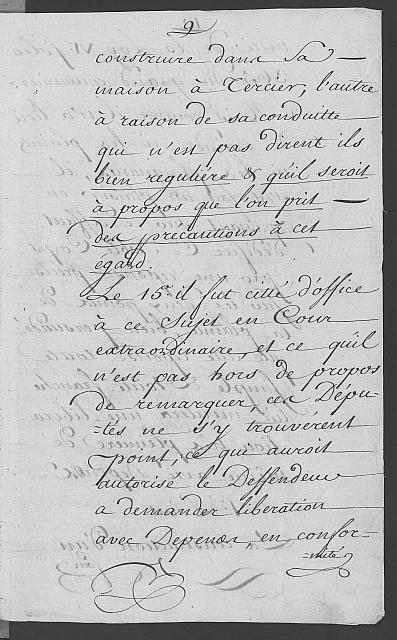 9
construire dans sa —
maison à Tercier, l'autre
à raison de sa conduitte
qui n'est pas dirent ils
bien reguliére & qu'il seroit
à propos que l'on prit —
des précautions à cet
égard.
Le 15e. il fut citté d'office
à ce sujet en Cour
extraordinaire, et ce qu'il
n'est pas hors de propos
de remarquer, ces Dépu-
-tés ne s'y trouvérent
point, ce qui auroit
autorisé le Deffendeur
a demander liberation
avec Depenses, en confor-
-mité